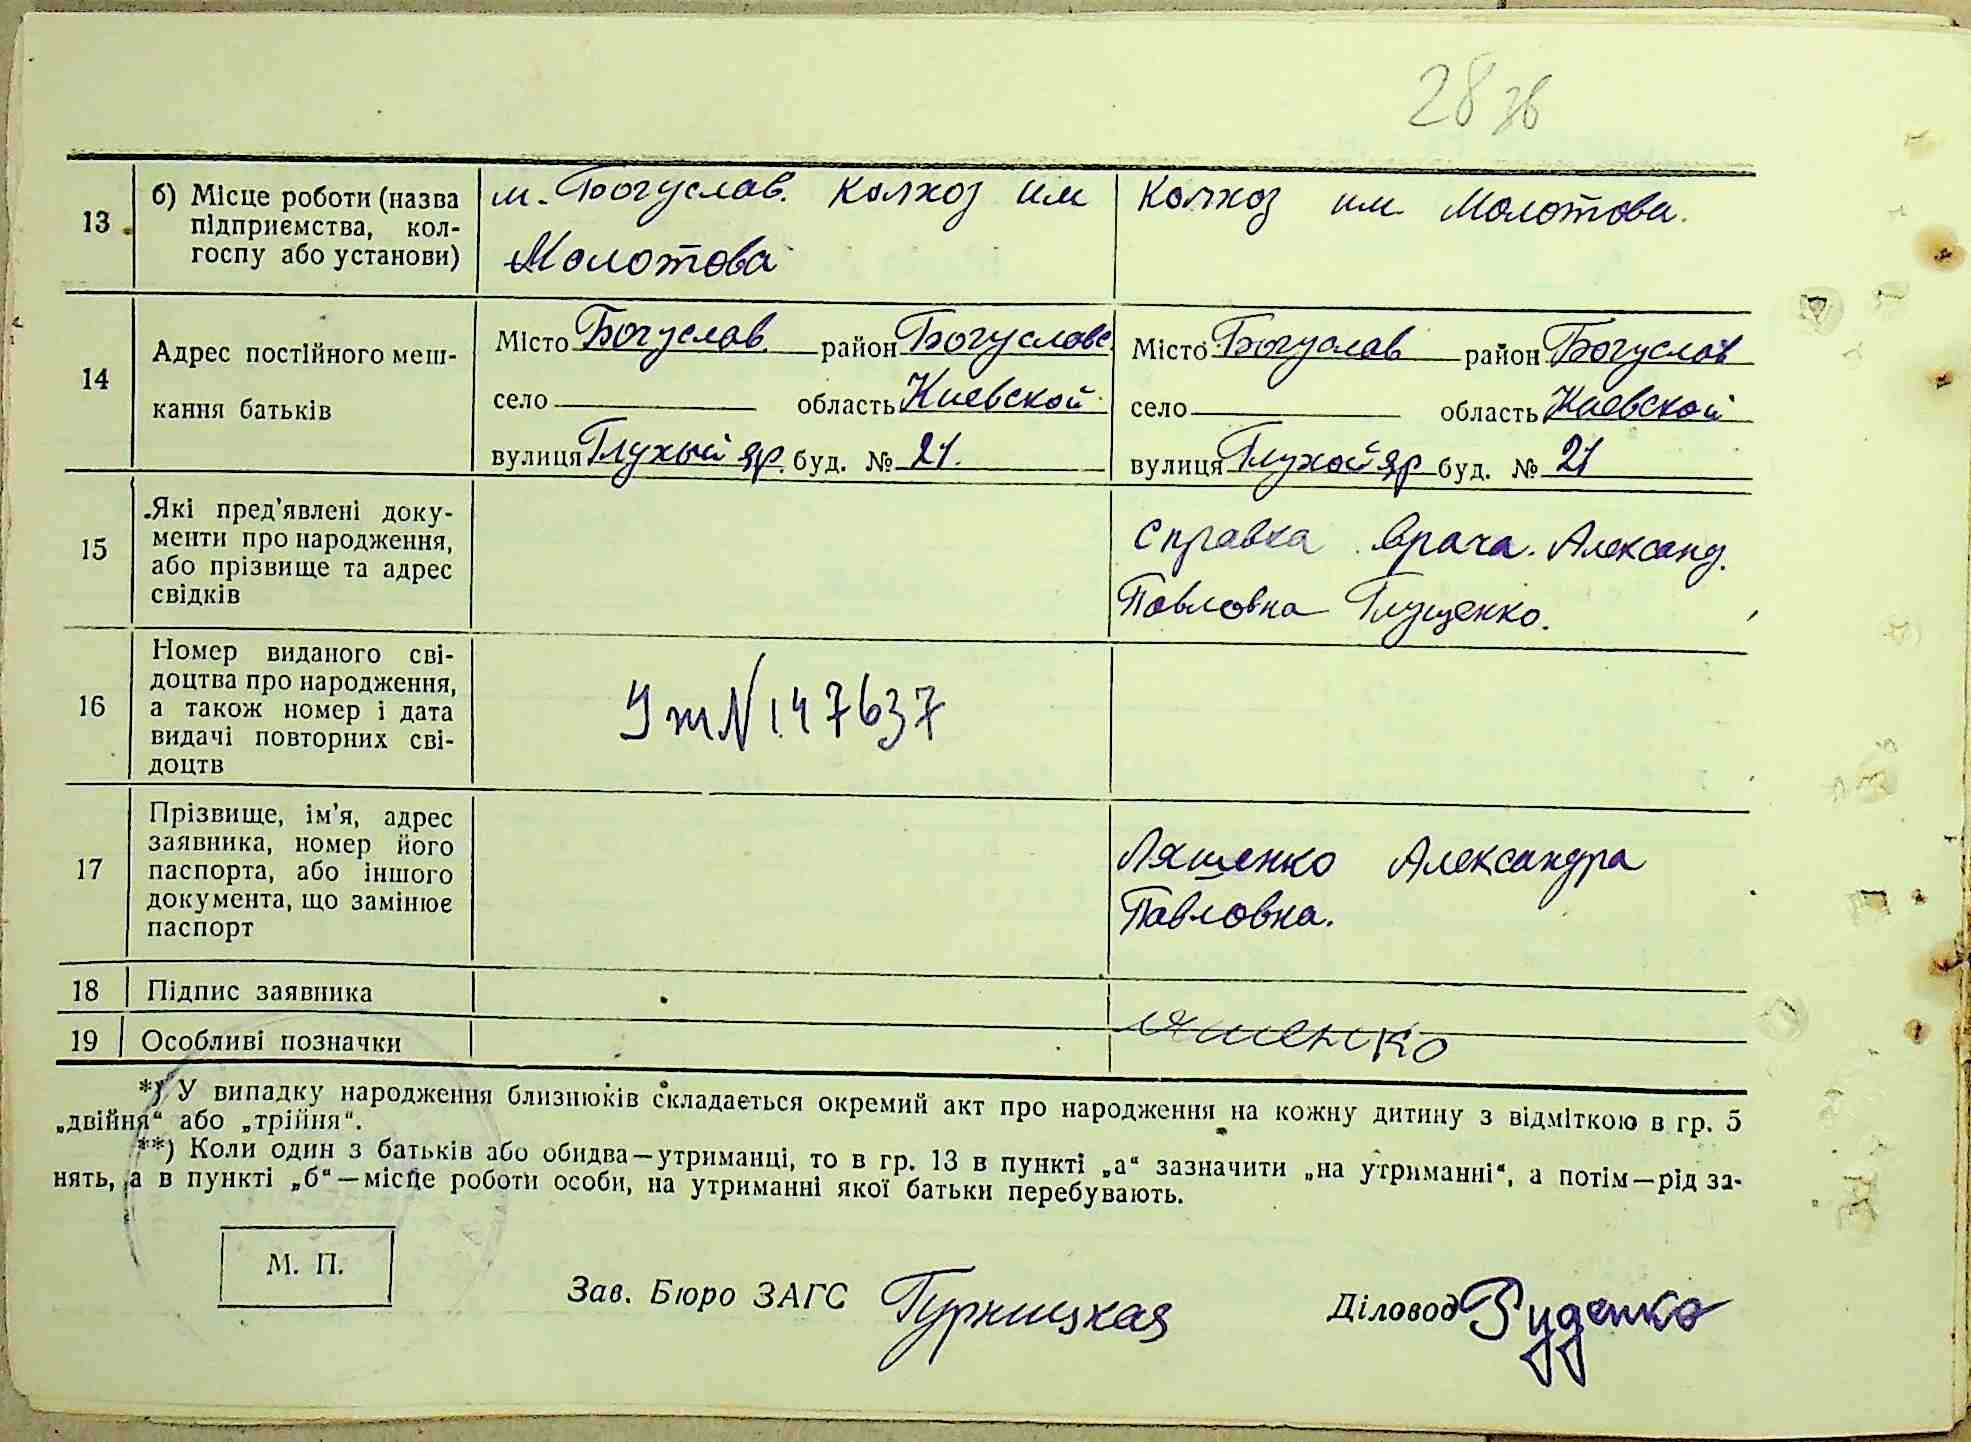 28 зв
13
б) Місце роботи (назва
підприємства, кол-
госпу або установи)
м. Богуслав. Колхоз им
Молотова
Колхоз им Молотова.
14
Адрес постійного меш-
кання батьків
Місто Богуслав район Богуславс.
село область Киевской
вулиця Глухый яр. буд. № 21.
Місто Богуслав район Богуслав
село область Киевской
вулиця Глухой яр буд. № 21
15
Які пред'явлені доку-
менти про народження,
або прізвище та адрес
свідків
Справка врача. Александ.
Павловна Глущенко.
16
Номер виданого сві-
доцтва про народження,
а також номер і дата
видачі повторних сві-
доцтв
№ 147637
17
Прізвище, ім'я, адрес
заявника, номер його
паспорта, або іншого
документа, що замінює
паспорт
Ляшенко Александра
Павловна.
18 Підпис заявника
19 Особливі позначки
Ляшенко
*) У випадку народження близнюків складається окремий акт про народження на кожну дитину з відміткою в гр. 5
„двійня“ або „трійня“.
**) Коли один з батьків або обидва—утриманці, то в гр. 13 в пункті „а“ зазначити „на утриманні“, а потім—рід за-
нять, а в пункті „б“—місце роботи особи, на утриманні якої батьки перебувають.
М. П.
Зав. Бюро ЗАГС
Діловод Руденко